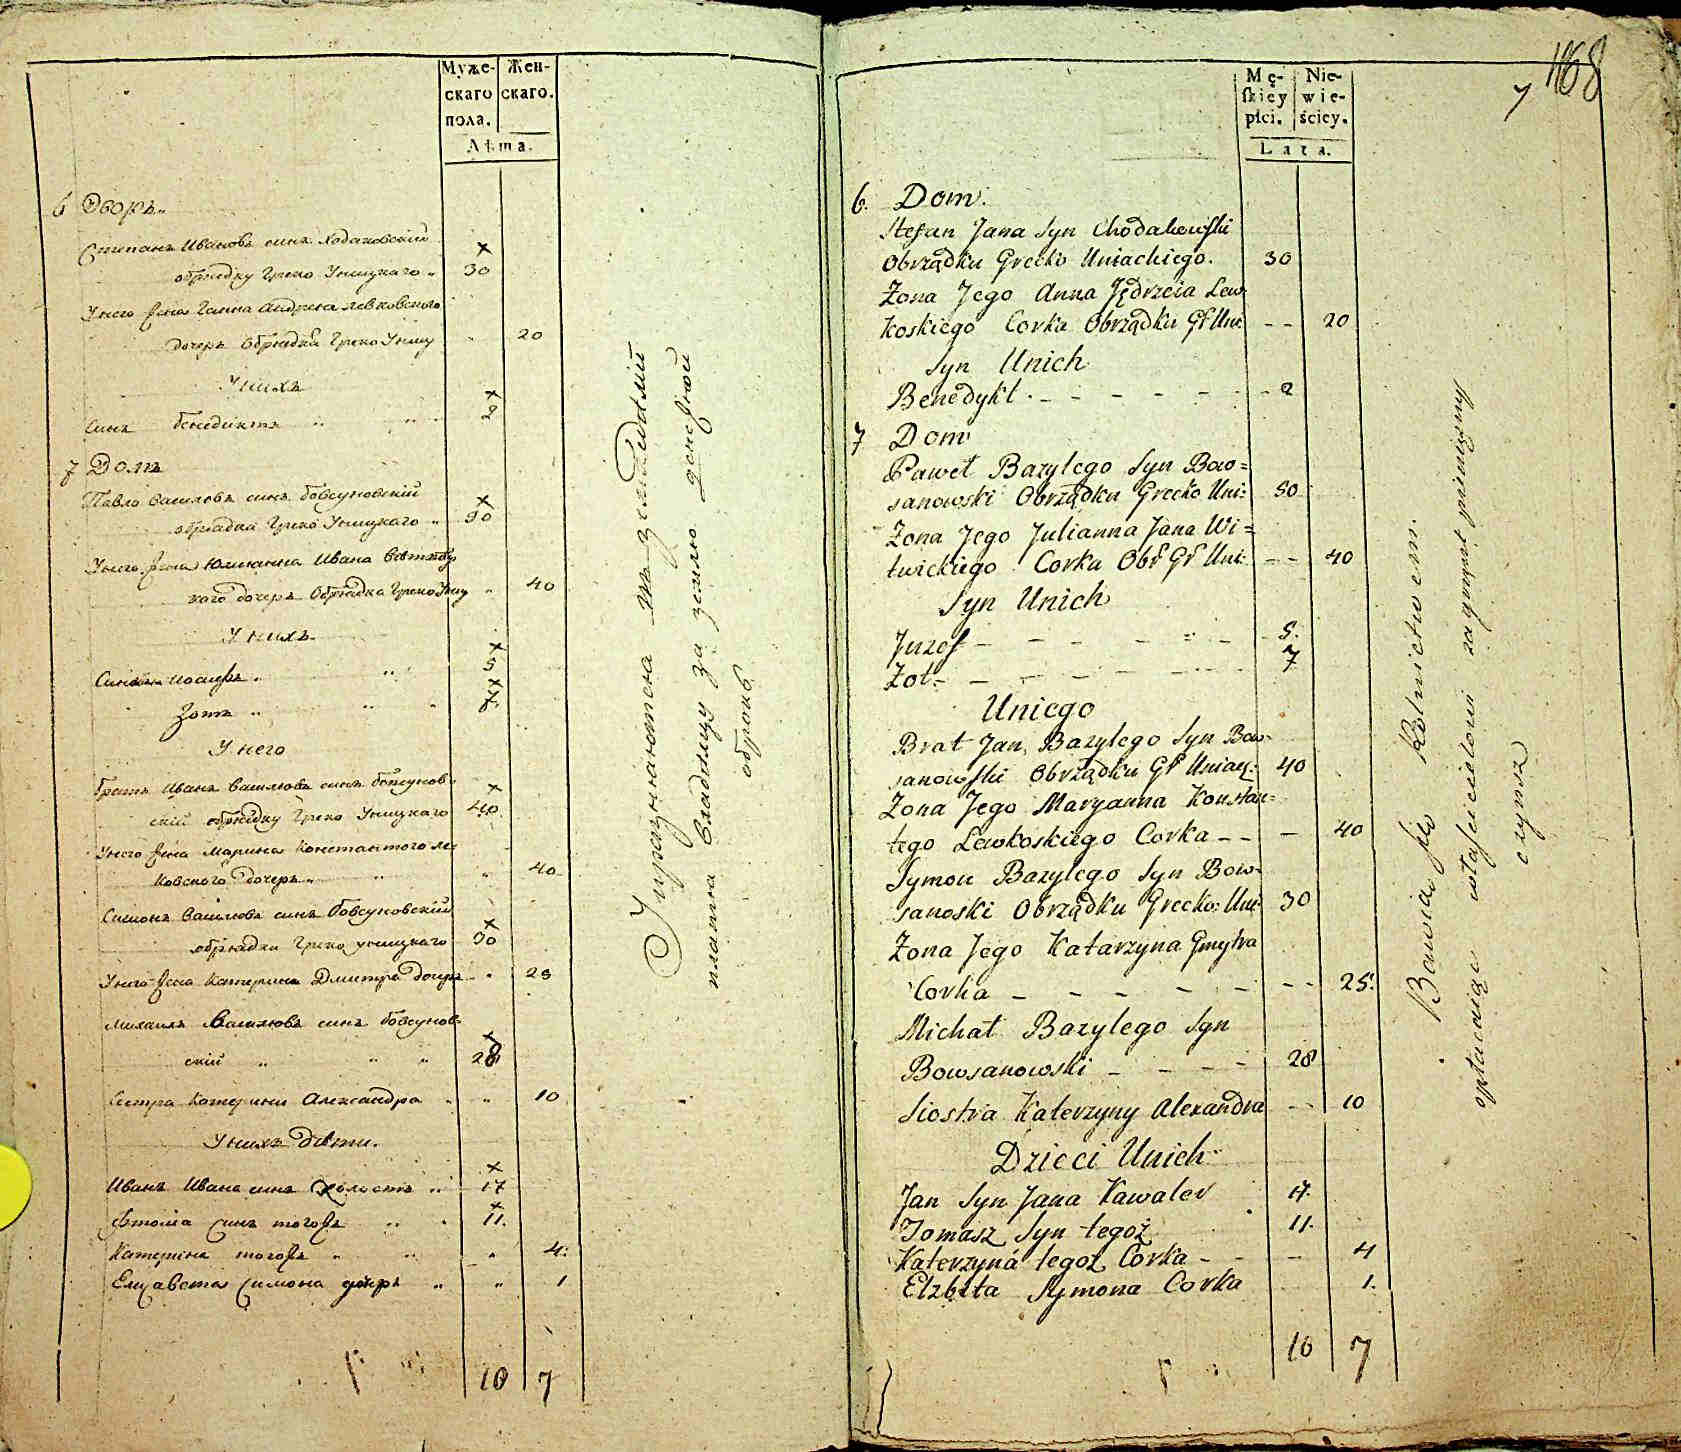 Муже-
скаго
пола.
Жен-
скаго.
Лѣта.
6 Дворъ
Степанъ Ивановъ синъ Ходаковскій
обрядку Греко Уницкаго 30
У него жена Ганна Андрея Левковского
дочеръ Обрядка Греко Униц 20
У нихъ
Синъ бенедиктъ 2
7 Домъ
Павло Василювъ синъ бовсуновскій
обрядка Греко Уницкаго 50
У него жена Юлианна Ивана
кого дочеръ Обрядка Греко Униц 40
У нихъ
Синъ Иосифъ 5
Зотъ 7
У него
братъ Иванъ Василювъ синъ бовсунов-
скій обрядку Греко Уницкаго 40
У него жена Марина Константого Ле-
ковского дочеръ 40
Симонъ Василювъ синъ бовсуновскій
обрядка Греко уницкаго 30
У него жена Катерина Дмитра дочеръ 25
Михаилъ Василювъ синъ бовсунов-
скій 28
Сестра Катерини Александра 10
У нихъ дѣти.
Иванъ Ивана синъ Холостъ 17
Фтома синъ тогожъ 11.
Катерина тогожъ 4.
Елизавета Симона дочеръ 1
10 7
Упражняются въ земледѣліи
платя владѣлцу за землю денежной
оброкъ
168
7
Mę-
skiey
płci.
Nie-
wie-
ściey.
Lata.
6. Dom.
Stefan Jana Syn Chodakowski
Obrządku Grecko Uniackiego. 30
Żona Jego Anna Jędrzeia Lew-
koskiego Corka Obrządku Gr Uni: - - 20
Syn Unich
Benedykt - - - - - - 2
7 Dom
Paweł Bazylego Syn Bow=
sanowski Obrządku Grecko Uni: 50
Żona Jego Julianna Jana Wi=
twickiego Corka Obr Gr Uni: - - 40
Syn Unich
Juzef - - - - - - 5.
Zot - - - - - - 7
Uniego
Brat Jan Bazylego Syn Bow-
sanowski Obrządku Gr Uniac: 40
Zona Jego Maryanna Konstan=
tego Lewkoskiego Corka - - - 40
Symon Bazylego Syn Bow-
sanoski Obrządku Grecko: Uni: 30
Żona Jego Katarzyna Dmytra
Corka - - - - - - - 25.
Michał Bazylego Syn
Bowsanowski - - - - 28
Siostra Katerzyny Alexandra - - 10
Dzieci Unich
Jan Syn Jana Kawaler 17.
Tomasz Syn tegoż 11.
Katerzyna tegoż Corka - - - 4
Elzbita Symona Corka 1.
10 7
Bawią się Rolnictwem.
opłacaiąc właścicielowi za grunt pieniężny
czynsz